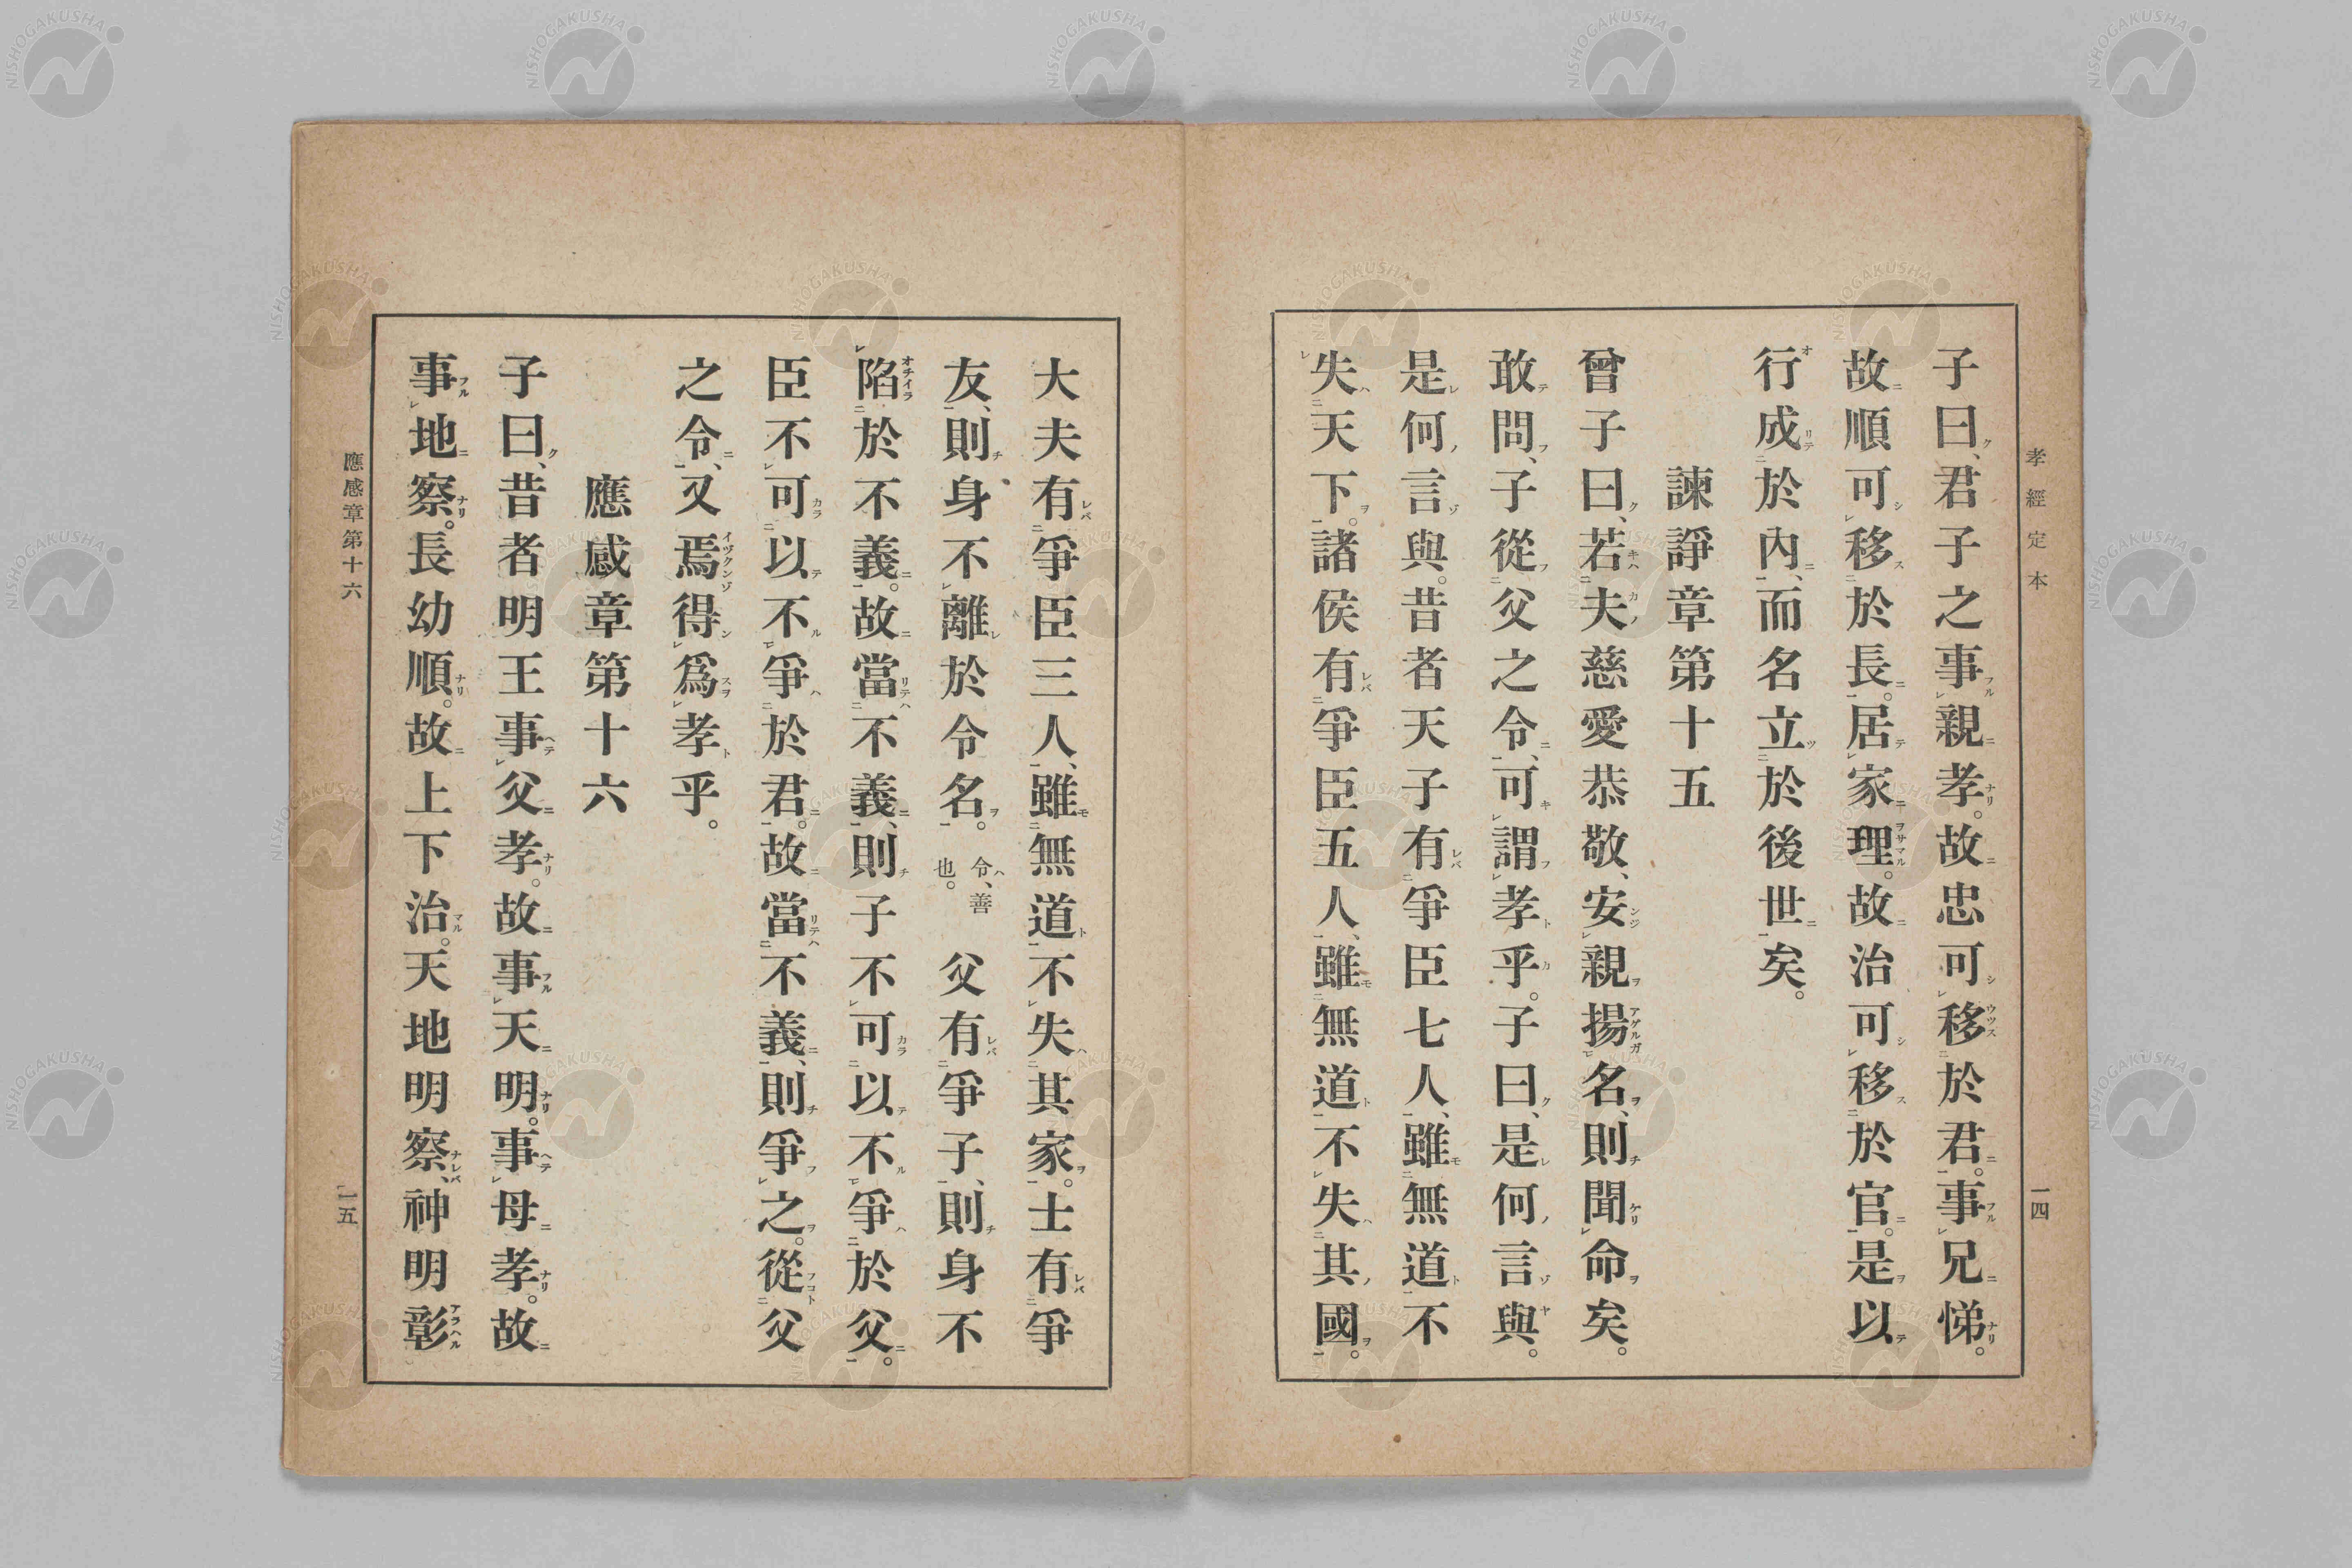 孝經定本
一四
子曰、君子之事親孝。故忠可移於君。事兄悌。
故順可移於長。居家理。故治可移於官。是以
行成於內、而名立於後世矣。
諫諍章第十五
曾子曰、若夫慈愛恭敬、安親揚名、則聞命矣。
敢問、子從父之令、可謂孝乎。子曰、是何言與。
是何言與。昔者天子有爭臣七人、雖無道不
失天下。諸侯有爭臣五人、雖無道不失其國。
大夫有爭臣三人、雖無道不失其家。士有爭
友、則身不離於令名。令、善也。父有爭子、則身不
陷於不義。故當不義、則子不可以不爭於父。
臣不可以不爭於君。故當不義、則爭之。從父
之令、又焉得爲孝乎。
應感章第十六
子曰、昔者明王事父孝。故事天明。事母孝。故
事地察。長幼順。故上下治。天地明察、神明彰
應感章第十六
一五
NISHOGAKUSHA